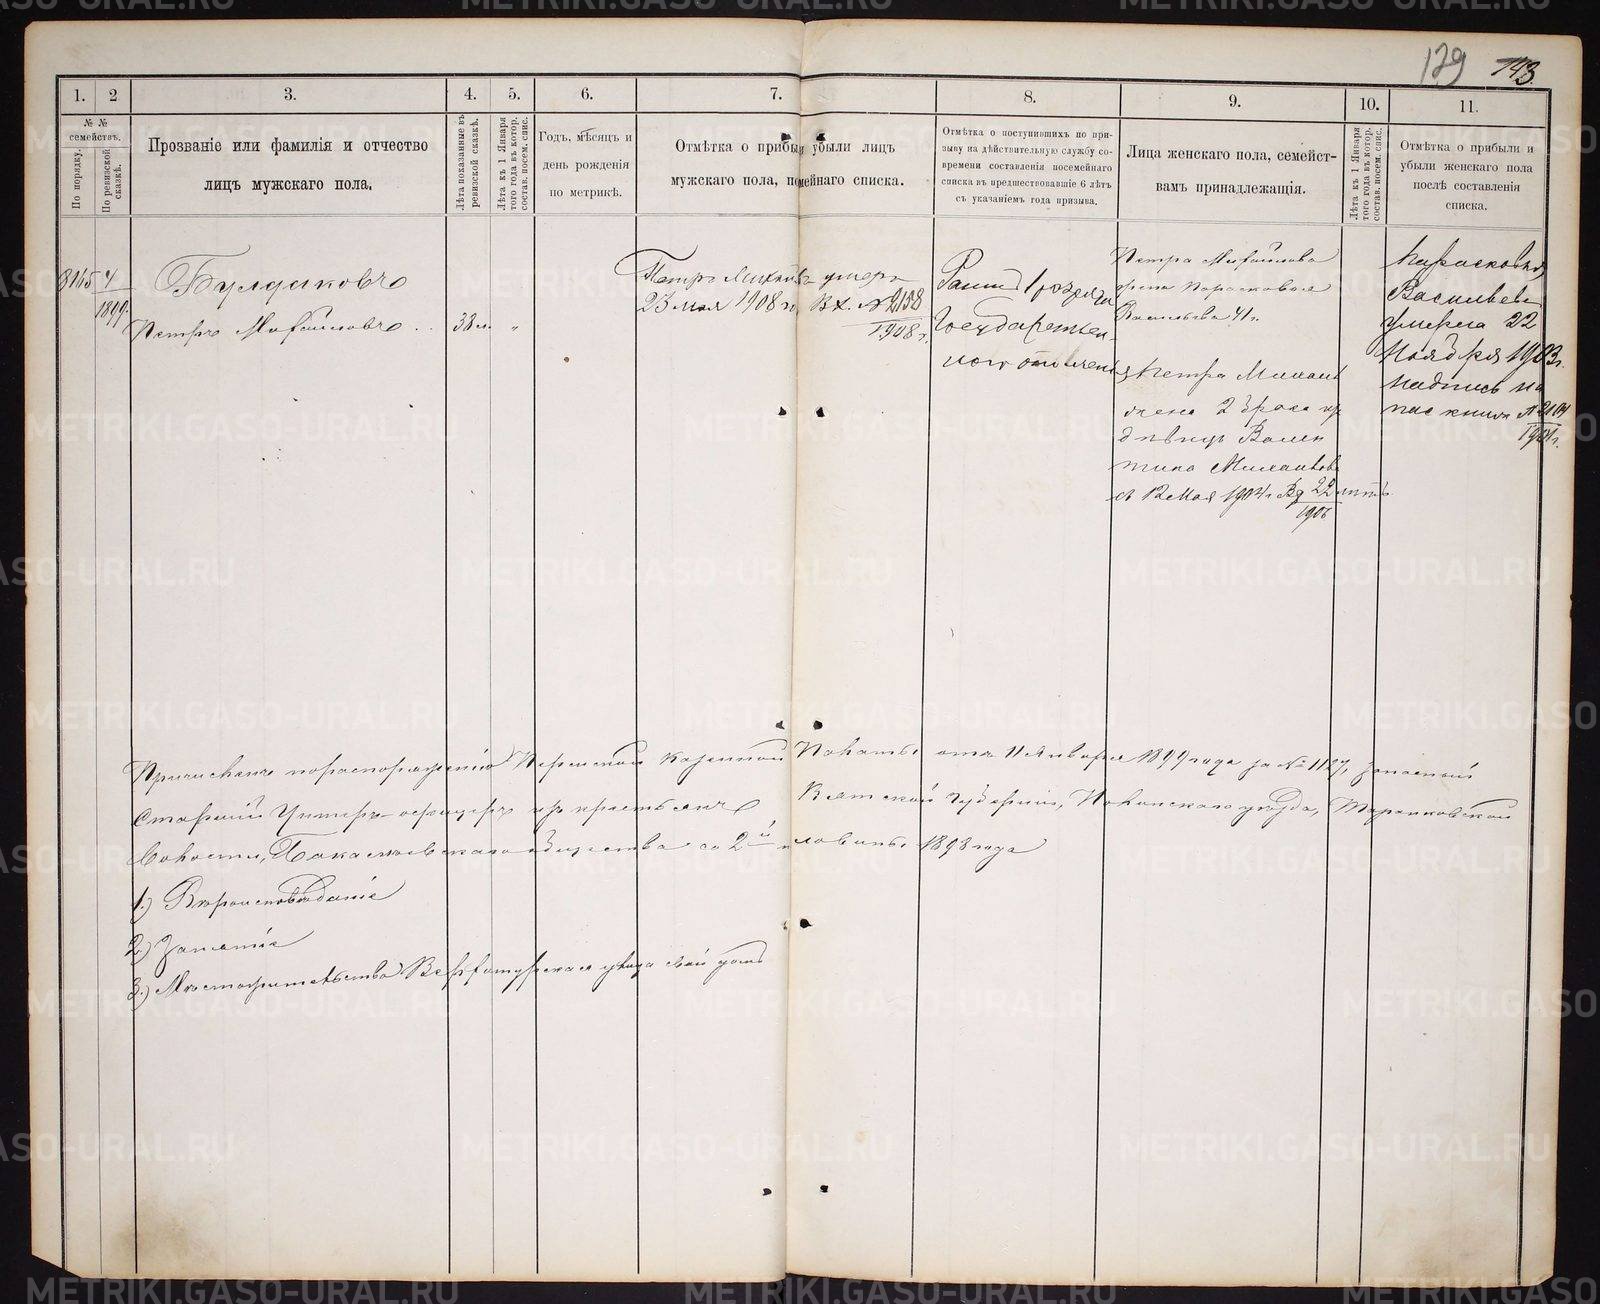 179 143.
1. 2 3. 4. 5. 6. 7. 8. 9. 10. 11.
№ №
семействъ.
По порядку.
По ревизской сказкѣ.
Прозваніе или фамилія и отчество
лицъ мужскаго пола.
Лѣта показанные въ
ревизской сказкѣ.
Лѣта къ 1 Января
того года въ котор.
состав. посем. спис.
Годъ, мѣсяцъ и
день рожденія
по метрикѣ.
Отмѣтка о прибы убыли лицъ
мужскаго пола, по мейнаго списка.
Отмѣтка о поступившихъ по при-
зыву на дѣйствительную службу со-
времени составленія посемейнаго
списка въ предшествовавшіе 6 лѣтъ
съ указаніемъ года призыва.
Лица женскаго пола, семейст-
вамъ принадлежащія.
Лѣта къ 1 Января
того года въ котор.
состав. посем. спис.
Отмѣтка о прибыли и
убыли женскаго пола
послѣ составленія
списка.
8165 4
1899.
Булдаковъ
Петръ Михайловъ . . 38 л. "
Петръ Михайловъ умеръ
23 мая 1908 г. Вх. № 2158
1908 г.
1 разряда
Государствен-
ного ополченія
Петра Михайлова
жена Парасковья
Васильева 41 г.
Петра Михаил
жена 2 брака
дѣвица Вален
тина Михайлова
съ 12 Мая 1904 г. Вд 22 лѣтъ
1906
Парасковья
Васильева
умерла 22
Ноября 1903 г.
надпись на
пас книж № 2104
1904 г.
Причисленъ по распоряженію Пермской Казенной Палаты отъ 11 Января 1899 года за № 1127, запасный
Старшій Унтеръ-офицеръ изъ крестьянъ Вятской Губерніи, Нолинскаго уѣзда,
Волости, общества со 2й половины 1898 года
1.) Вѣроисповѣданіе
2.) Занятіе
3.) Мѣстожительство Верхотурскаго уѣзда свой домъ
METRIKI.GASO-URAL.RU